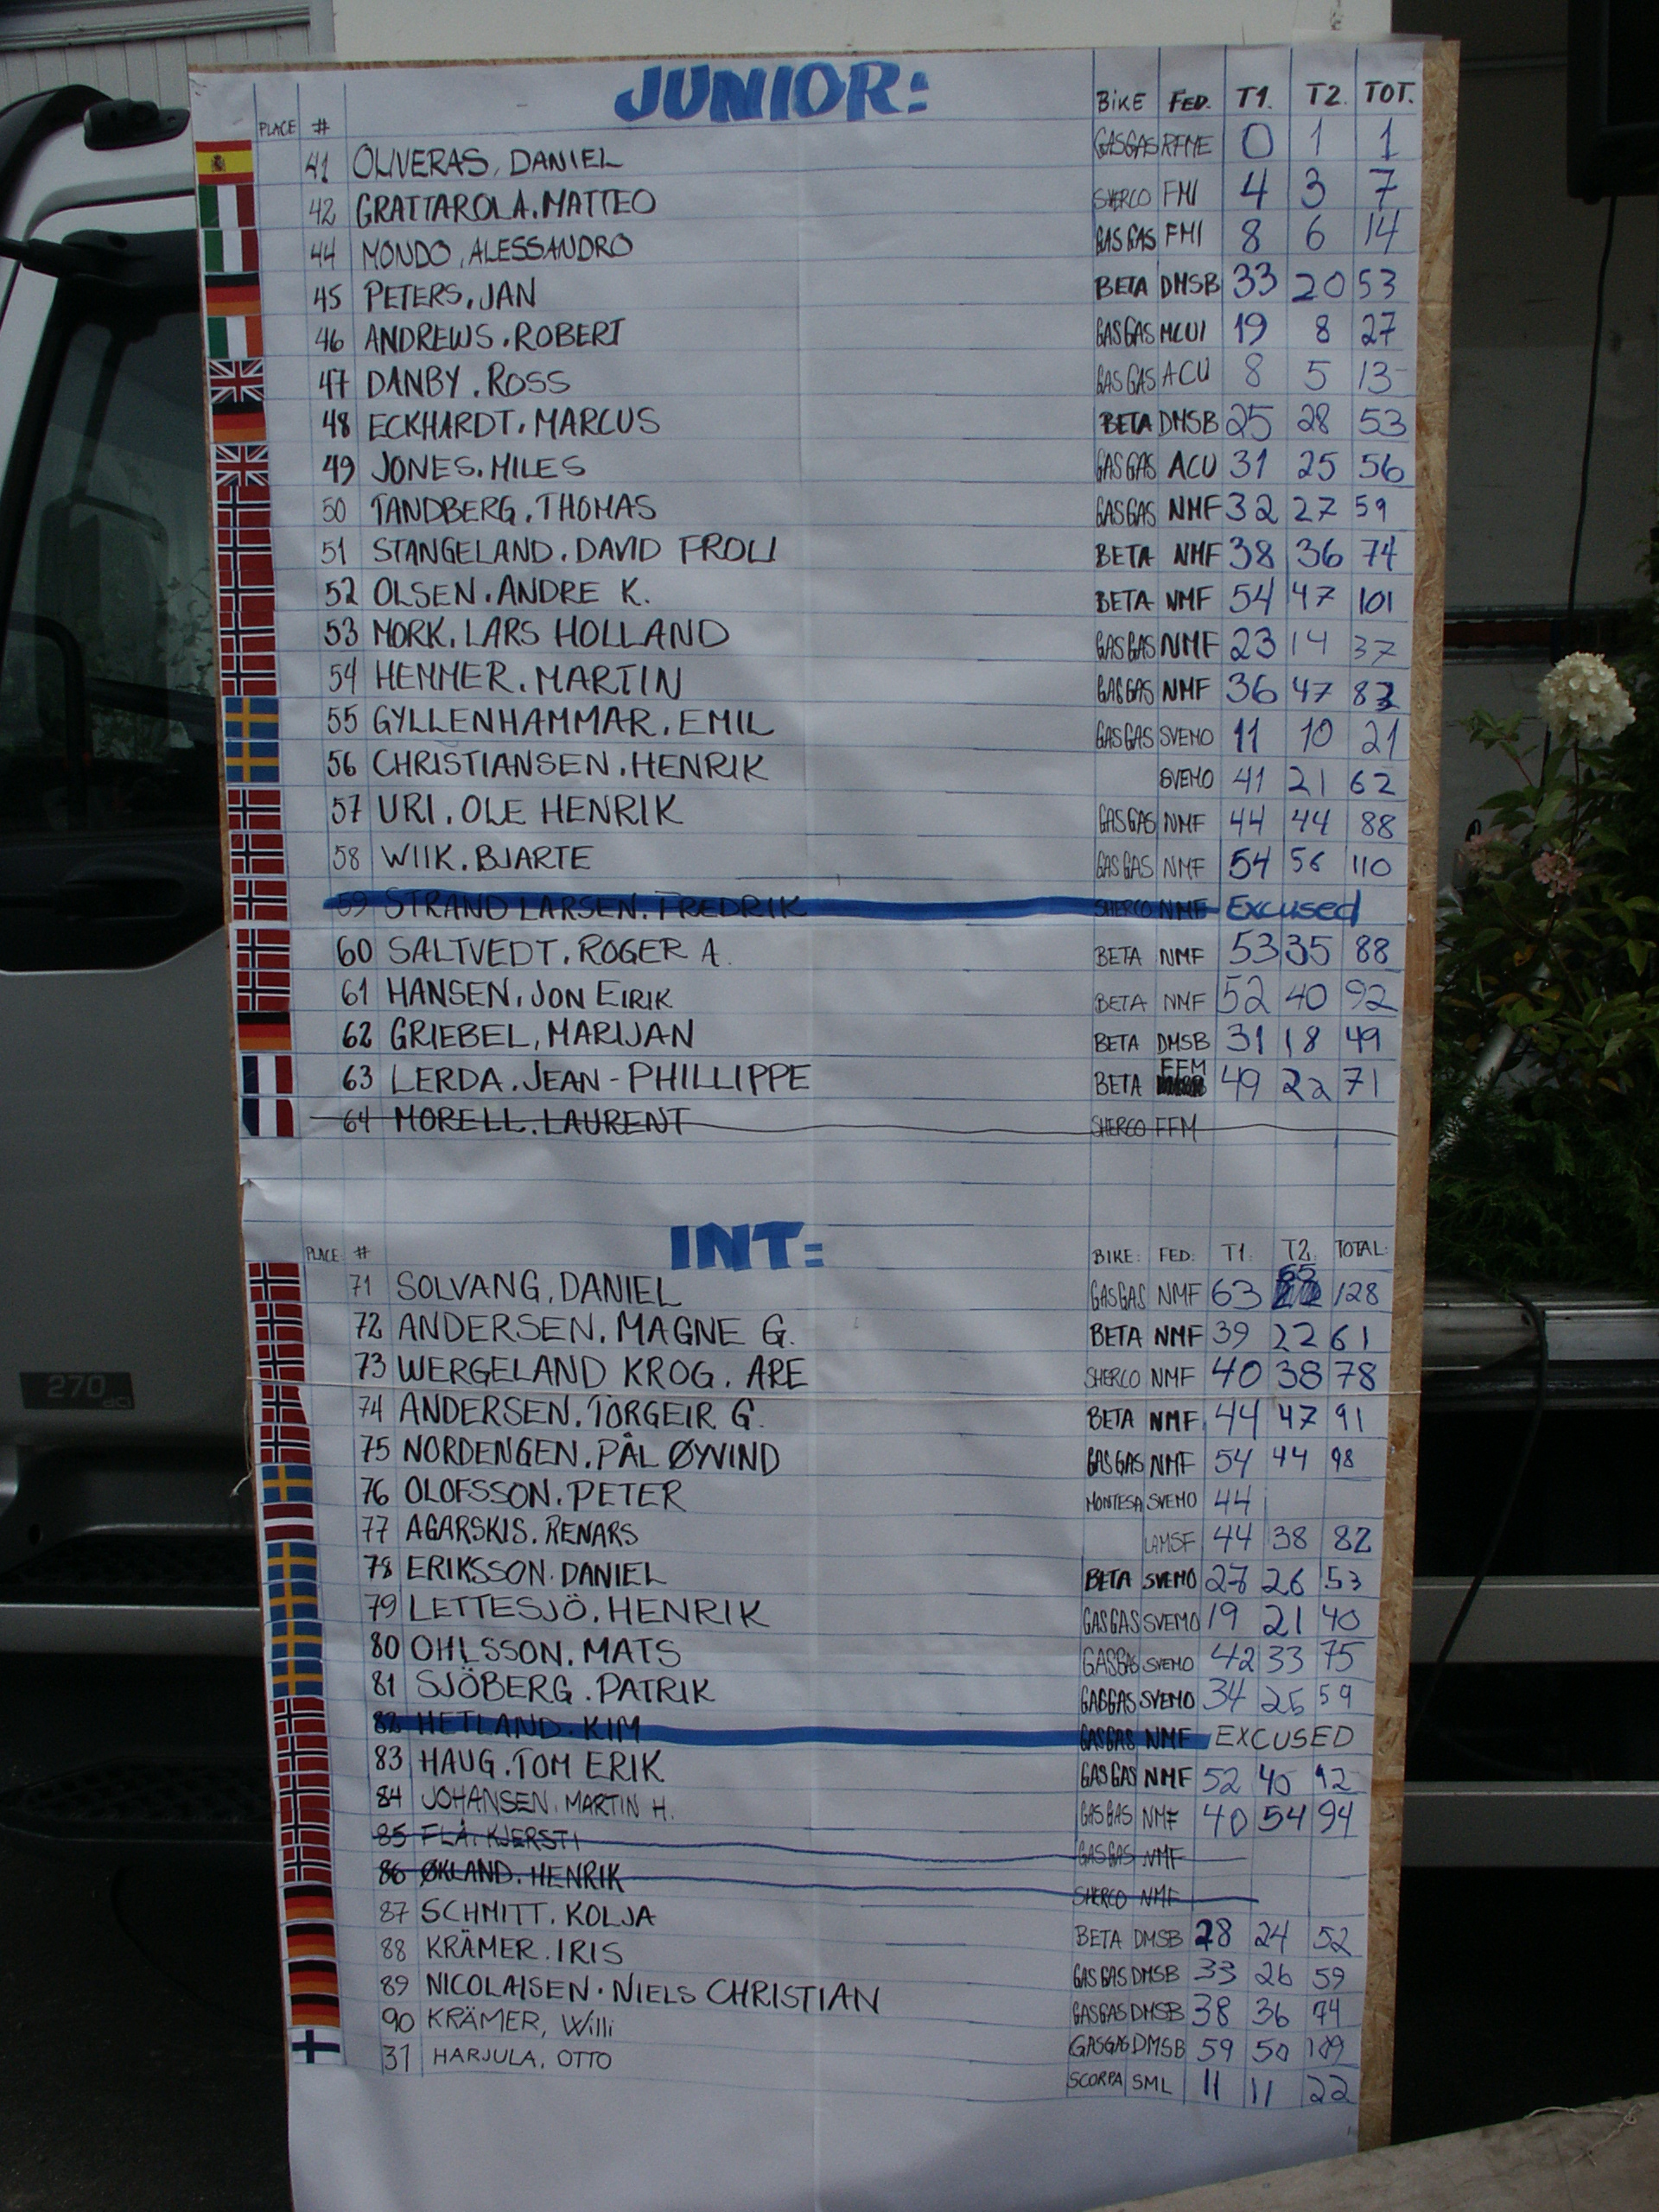 JUNIOR:
PLACE # BIKE FED. T1. T2. TOT.
41 OLIVERAS, DANIEL GASGAS RFME 0 1 1
42 GRATTAROLA. MATTEO SHERCO FMI 4 3 7
44 MONDO, ALESSANDRO GASGAS FMI 8 6 14
45 PETERS, JAN BETA DMSB 33 20 53
46 ANDREWS. ROBERT GASGAS MCUI 19 8 27
47 DANBY. ROSS GASGAS ACU 8 5 13
48 ECKHARDT. MARCUS BETA DMSB 25 28 53
49 JONES. MILES GASGAS ACU 31 25 56
50 TANDBERG. THOMAS GASGAS NMF 32 27 59
51 STANGELAND. DAVID FROLI BETA NMF 38 36 74
52 OLSEN. ANDRE K. BETA NMF 54 47 101
53 MORK. LARS HOLLAND GASGAS NMF 23 14 37
54 HEMMER. MARTIN GASGAS NMF 36 47 83
55 GYLLENHAMMAR. EMIL GASGAS SVEMO 11 10 21
56 CHRISTIANSEN. HENRIK SVEMO 41 21 62
57 URI. OLE HENRIK GASGAS NMF 44 44 88
58 WIIK. BJARTE GASGAS NMF 54 56 110
59 STRAND LARSEN. FREDRIK SHERCO NMF Excused
60 SALTVEDT. ROGER A. BETA NMF 53 35 88
61 HANSEN. JON EIRIK BETA NMF 52 40 92
62 GRIEBEL, MARIJAN BETA DMSB 31 18 49
63 LERDA. JEAN-PHILLIPPE BETA FFM 49 22 71
64 MORELL. LAURENT SHERCO FFM
INT:
PLACE: # BIKE: FED: T1: T2: TOTAL:
71 SOLVANG, DANIEL GASGAS NMF 63 65 128
72 ANDERSEN. MAGNE G. BETA NMF 39 22 61
73 WERGELAND KROG. ARE SHERCO NMF 40 38 78
74 ANDERSEN. TORGEIR G. BETA NMF 44 47 91
75 NORDENGEN. PÅL ØYVIND GASGAS NMF 54 44 98
76 OLOFSSON. PETER MONTESA SVEMO 44
77 AGARSKIS. RENARS LAMSF 44 38 82
78 ERIKSSON. DANIEL BETA SVEMO 27 26 53
79 LETTESJÖ. HENRIK GASGAS SVEMO 19 21 40
80 OHLSSON. MATS GASGAS SVEMO 42 33 75
81 SJÖBERG. PATRIK GASGAS SVEMO 34 25 59
82 HETLAND. KIM GASGAS NMF EXCUSED
83 HAUG. TOM ERIK GASGAS NMF 52 40 92
84 JOHANSEN. MARTIN H. GASGAS NMF 40 54 94
85 FLÅ. KJERSTI GASGAS NMF
86 ØKLAND. HENRIK SHERCO NMF
87 SCHMITT. KOLJA BETA DMSB 28 24 52
88 KRÄMER. IRIS GASGAS DMSB 33 26 59
89 NICOLAISEN. NIELS CHRISTIAN GASGAS DMSB 38 36 74
90 KRÄMER, Willi GASGAS DMSB 59 50 109
31 HARJULA, OTTO SCORPA SML 11 11 22
270 dCi